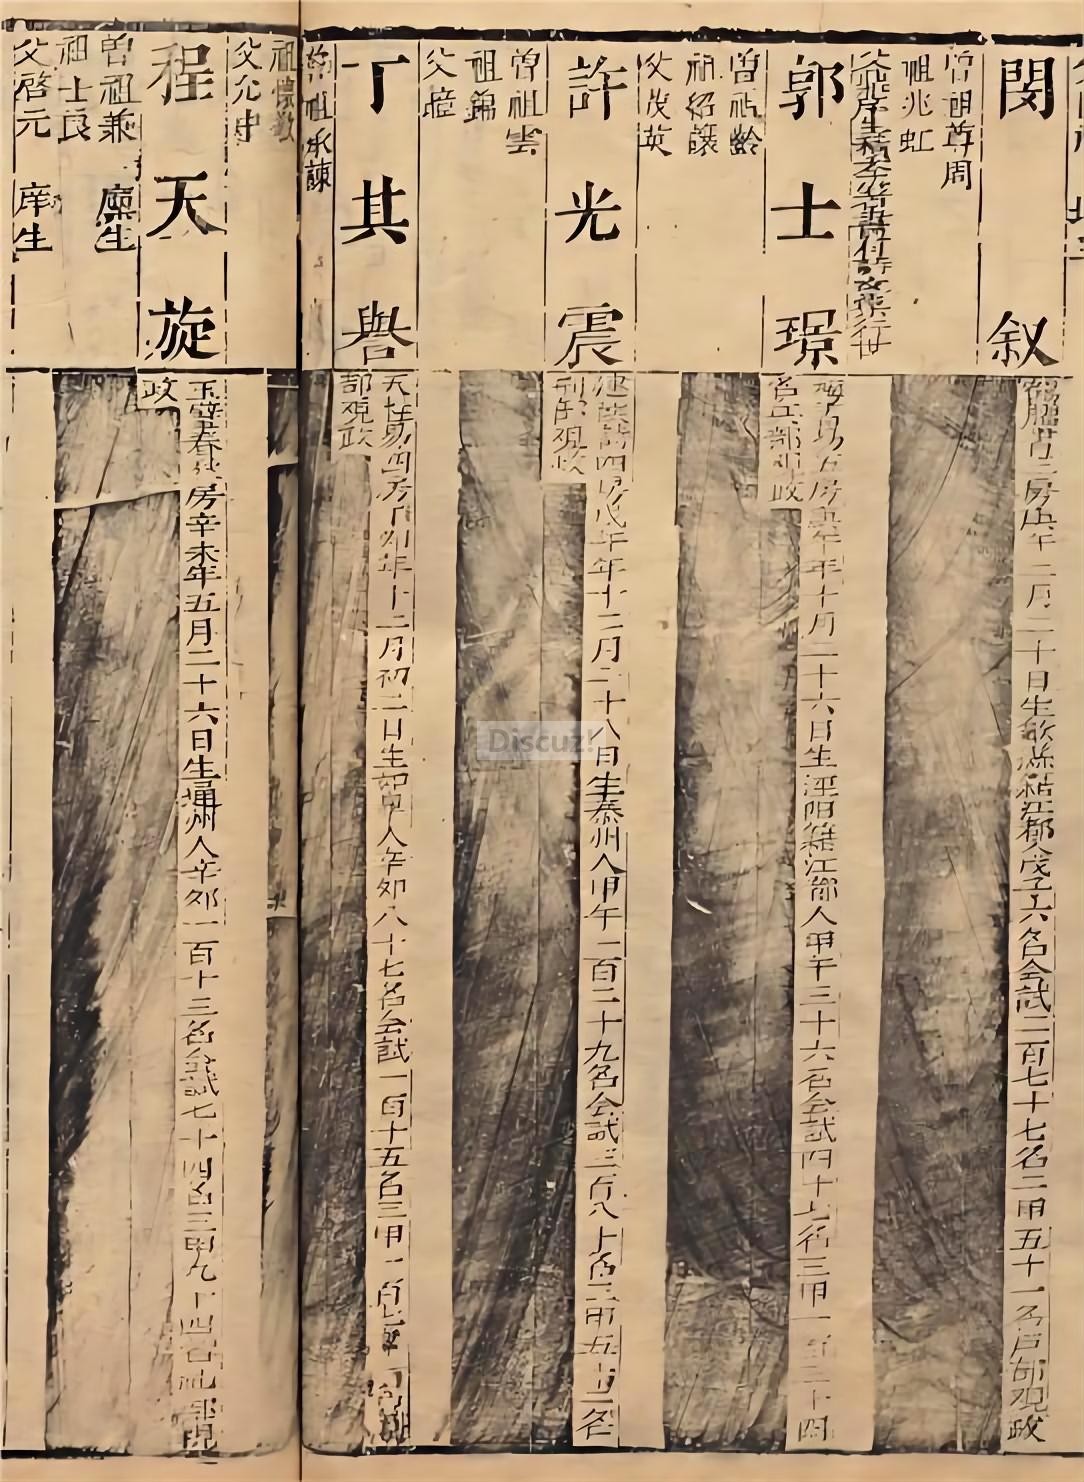 閔叙
鶴臚 二房庚午二月二十日生歙縣籍江都人戊子六名会試二百七十七名二甲五十一名戶部观政
曾祖尊周
祖兆虹
父 庠生 行世
郭士璟
易五房庚午年十月二十六日生涇阳籍江都人甲午三十六名会試四十七名三甲一百三十四
名兵部观政
曾祖齡
祖紹讓
父茂英
許光震
詩四房戊午年十二月二十八日生泰州人甲午一百二十九名会試三百八十名三甲五十一名
刑部观政
曾祖雲
祖錦
父
丁其譽
天 易四房丁卯年十二月初二日生如皋人辛卯八十七名会試一百十五名三甲一百
部观政
曾祖承諫
祖懷
父允
程天旋
玉 春秋房辛未年五月二十六日生 州人辛卯一百十三名会試七十四名三甲九十四名礼部現
政
曾祖兼 廩生
祖士良
父啓元 庠生
Discuz!